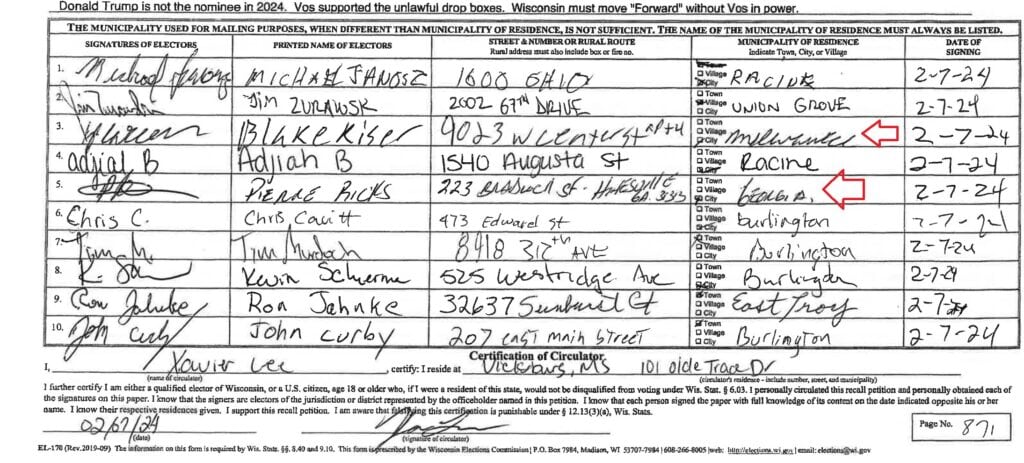 Donald Trump is not the nominee in 2024. Vos supported the unlawful drop boxes. Wisconsin must move "Forward" without Vos in power.
THE MUNICIPALITY USED FOR MAILING PURPOSES, WHEN DIFFERENT THAN MUNICIPALITY OF RESIDENCE, IS NOT SUFFICIENT. THE NAME OF THE MUNICIPALITY OF RESIDENCE MUST ALWAYS BE LISTED.
SIGNATURES OF ELECTORS PRINTED NAME OF ELECTORS STREET & NUMBER OR RURAL ROUTE Rural address must also include box or fire no. MUNICIPALITY OF RESIDENCE Indicate Town, City, or Village DATE OF SIGNING
1. MICHAEL JANOSZ 1600 OHIO Town Village City RACINE 2-7-24
2. JIM ZURAWSK 2002 67TH DRIVE Town Village City UNION GROVE 2-7-24
3. Blake Kiser 9023 W Center st apt 4 Town Village City Milwaukee 2-7-24
4. adjiah B Adjiah B 1540 Augusta St Town Village City Racine 2-7-24
5. PIERRE RICKS 223 st. GA. 31313 Town Village City GEORGIA. 2-7-24
6. Chris C. Chris Cavitt 473 Edward St Town Village City burlington 2-7-24
7. Tim M. Tim Murdoch 8418 312th AVE Town Village City Burlington 2-7-24
8. Kevin 525 Westridge Ave Town Village City Burlington 2-7-24
9. Ron Jahnke Ron Jahnke 32637 Sunhurst Ct Town Village City East Troy 2-7-24
10. John Curby John Curby 207 east main street Town Village City Burlington 2-7-24
Certification of Circulator
I, Xavier Lee, certify: I reside at Vicksburg, MS 101 olde Trace Dr
(name of circulator) (circulator's residence - include number, street, and municipality)
I further certify I am either a qualified elector of Wisconsin, or a U.S. citizen, age 18 or older who, if I were a resident of this state, would not be disqualified from voting under Wis. Stat. § 6.03. I personally circulated this recall petition and personally obtained each of
the signatures on this paper. I know that the signers are electors of the jurisdiction or district represented by the officeholder named in this petition. I know that each person signed the paper with full knowledge of its content on the date indicated opposite his or her
name. I know their respective residences given. I support this recall petition. I am aware that falsifying this certification is punishable under § 12.13(3)(a), Wis. Stats.
02/07/24
(date) (signature of circulator)
Page No. 871
EL-170 (Rev.2019-09) The information on this form is required by Wis. Stats. §§. 8.40 and 9.10. This form is prescribed by the Wisconsin Elections Commission | P.O. Box 7984, Madison, WI 53707-7984 | 608-266-8005 | web: http://elections.wi.gov | email: elections@wi.gov